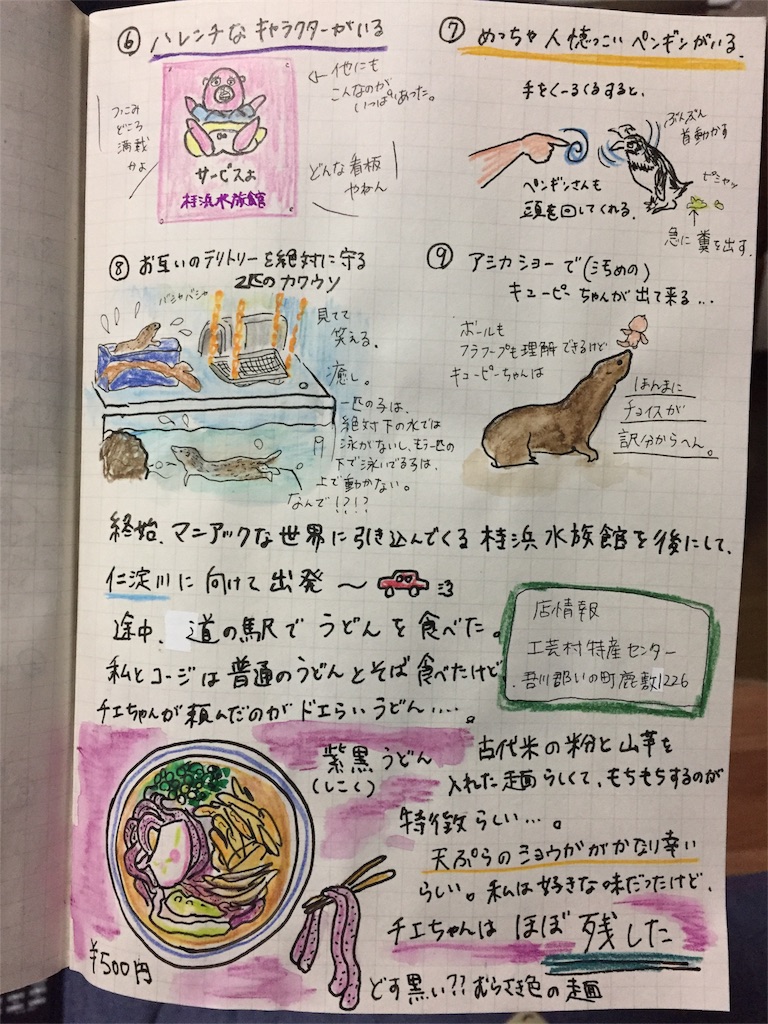 ⑥ ハレンチなキャラクターがいる
← 他にも
こんなのが
いっぱいあった。
ツッこみ
どころ
満載
かよ
サービスよ
桂浜水族館
どんな看板
やねん
⑦ めっちゃ人懐っこいペンギンがいる。
手をくーるくるすると、
ぶんぶん
首動かす
ペンギンさんも
頭を回してくれる。
ピシャッ
急に糞を出す。
⑧ お互いのテリトリーを絶対に守る
2匹のカワウソ
バシャバシャ
見てて
笑える。
癒し。
一匹の子は、
絶対下の水では
泳がないし、もう一匹の
下で泳いでる子は、
上で動かない。
なんで!?!?
⑨ アシカショーで(汚めの)
キューピーちゃんが出て来る…
ボールも
フラフープも理解できるけど
キューピーちゃんは
ほんまに
チョイスが
訳分からへん。
終始、マニアックな世界に引き込んでくる桂浜水族館を後にして、
仁淀川に向けて出発〜
途中、道の駅でうどんを食べた。
私とコージは普通のうどんとそば食べたけど、
チエちゃんが頼んだのがドエらいうどん…。
店情報
工芸村特産センター
吾川郡いの町鹿敷1226
紫黒うどん
(しこく)
古代米の粉と山芋を
入れた麺らしくて、もちもちするのが
特徴らしい…。
天ぷらのショウががかなり辛い
らしい。私は好きな味だったけど、
チエちゃんはほぼ残した
¥500円
どす黒い??むらさき色の麺